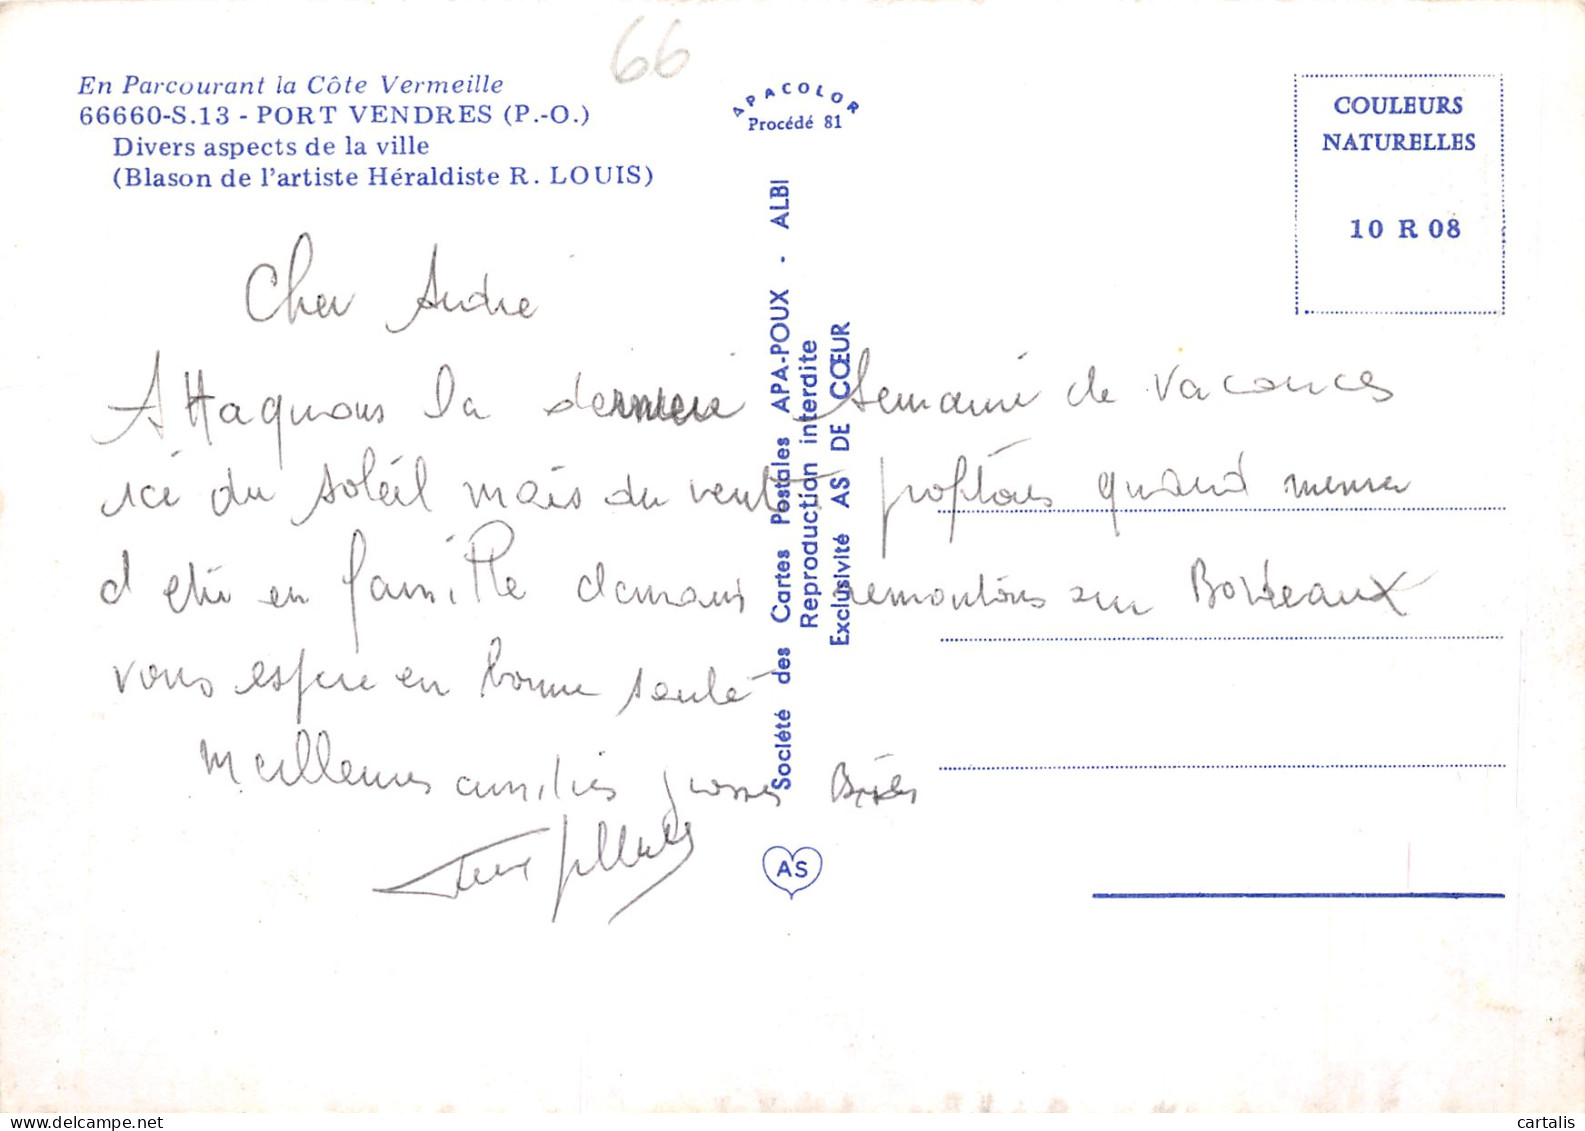 66
En Parcourant la Côte Vermeille
66660-S.13 - PORT VENDRES (P.-O.)
Divers aspects de la ville
(Blason de l'artiste Héraldiste R. LOUIS)
APACOLOR
Procédé 81
COULEURS
NATURELLES
10 R 08
Société des Cartes Postales APA-POUX - ALBI
Reproduction interdite
Exclusivité AS DE CŒUR
Cher André
Attaquons la derniere semaine de vacances
ici du soleil mais du vent profitons quand meme
d etre en famille demain remontons sur Bordeaux
vous espere en bonne santé
Meilleures amitiés grosses Bises
AS
cartalis